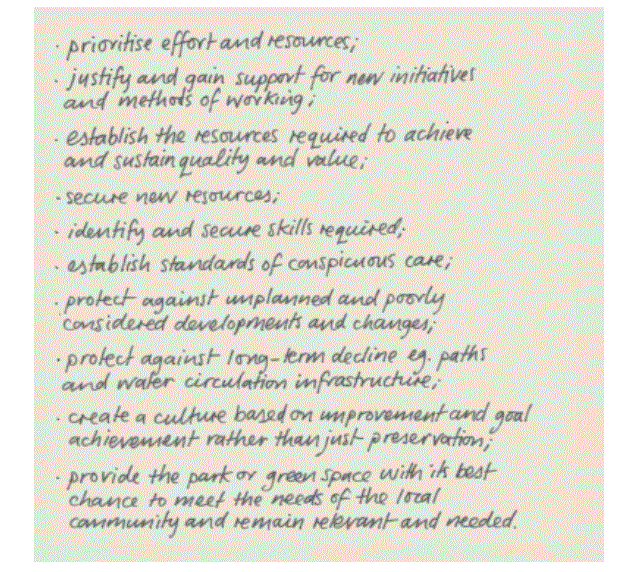 · prioritise effort and resources;
· justify and gain support for new initiatives
and methods of working;
· establish the resources required to achieve
and sustain quality and value;
· secure new resources;
· identify and secure skills required;
· establish standards of conspicuous care;
· protect against unplanned and poorly
considered developments and changes;
· protect against long-term decline eg. paths
and water circulation infrastructure;
· create a culture based on improvement and goal
achievement rather than just preservation;
· provide the park or green space with its best
chance to meet the needs of the local
community and remain relevant and needed.